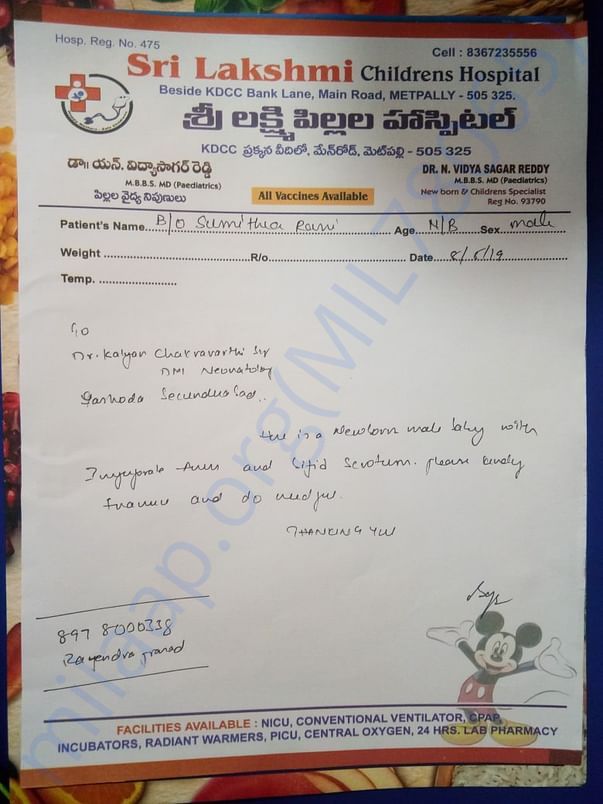 Hosp. Reg. No. 475
Cell : 8367235556
Sri Lakshmi Childrens Hospital
Beside KDCC Bank Lane, Main Road, METPALLY - 505 325.
శ్రీ లక్ష్మి పిల్లల హాస్పిటల్
KDCC ప్రక్కన వీదిలో, మేన్‌రోడ్, మెటపల్లి - 505 325
డా॥ యన్. విద్యాసాగర్ రెడ్డి
M.B.B.S. MD (Paediatrics)
పిల్లల వైద్య నిపుణులు
All Vaccines Available
DR. N. VIDYA SAGAR REDDY
M.B.B.S. MD (Paediatrics)
New born & Childrens Specialist
Reg No. 93790
Patient's Name B/O Sumithra Rani Age N/B Sex male
Weight R/o Date 8/5/19
Temp.
To
Dr. Kalyan Chakravarthi Sir
DM Neonatology
Yashoda Secunderabad..
is a Newborn male baby with
Anus and bifid Scrotum. please kindly
and do needful.
THANKING YOU
897 8000338
Rajendra prasad
FACILITIES AVAILABLE : NICU, CONVENTIONAL VENTILATOR, CPAP,
INCUBATORS, RADIANT WARMERS, PICU, CENTRAL OXYGEN, 24 HRS. LAB PHARMACY